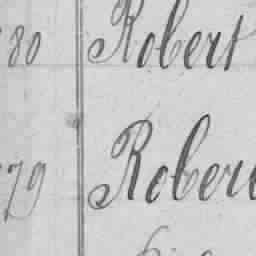 80 Robert
79 Robert